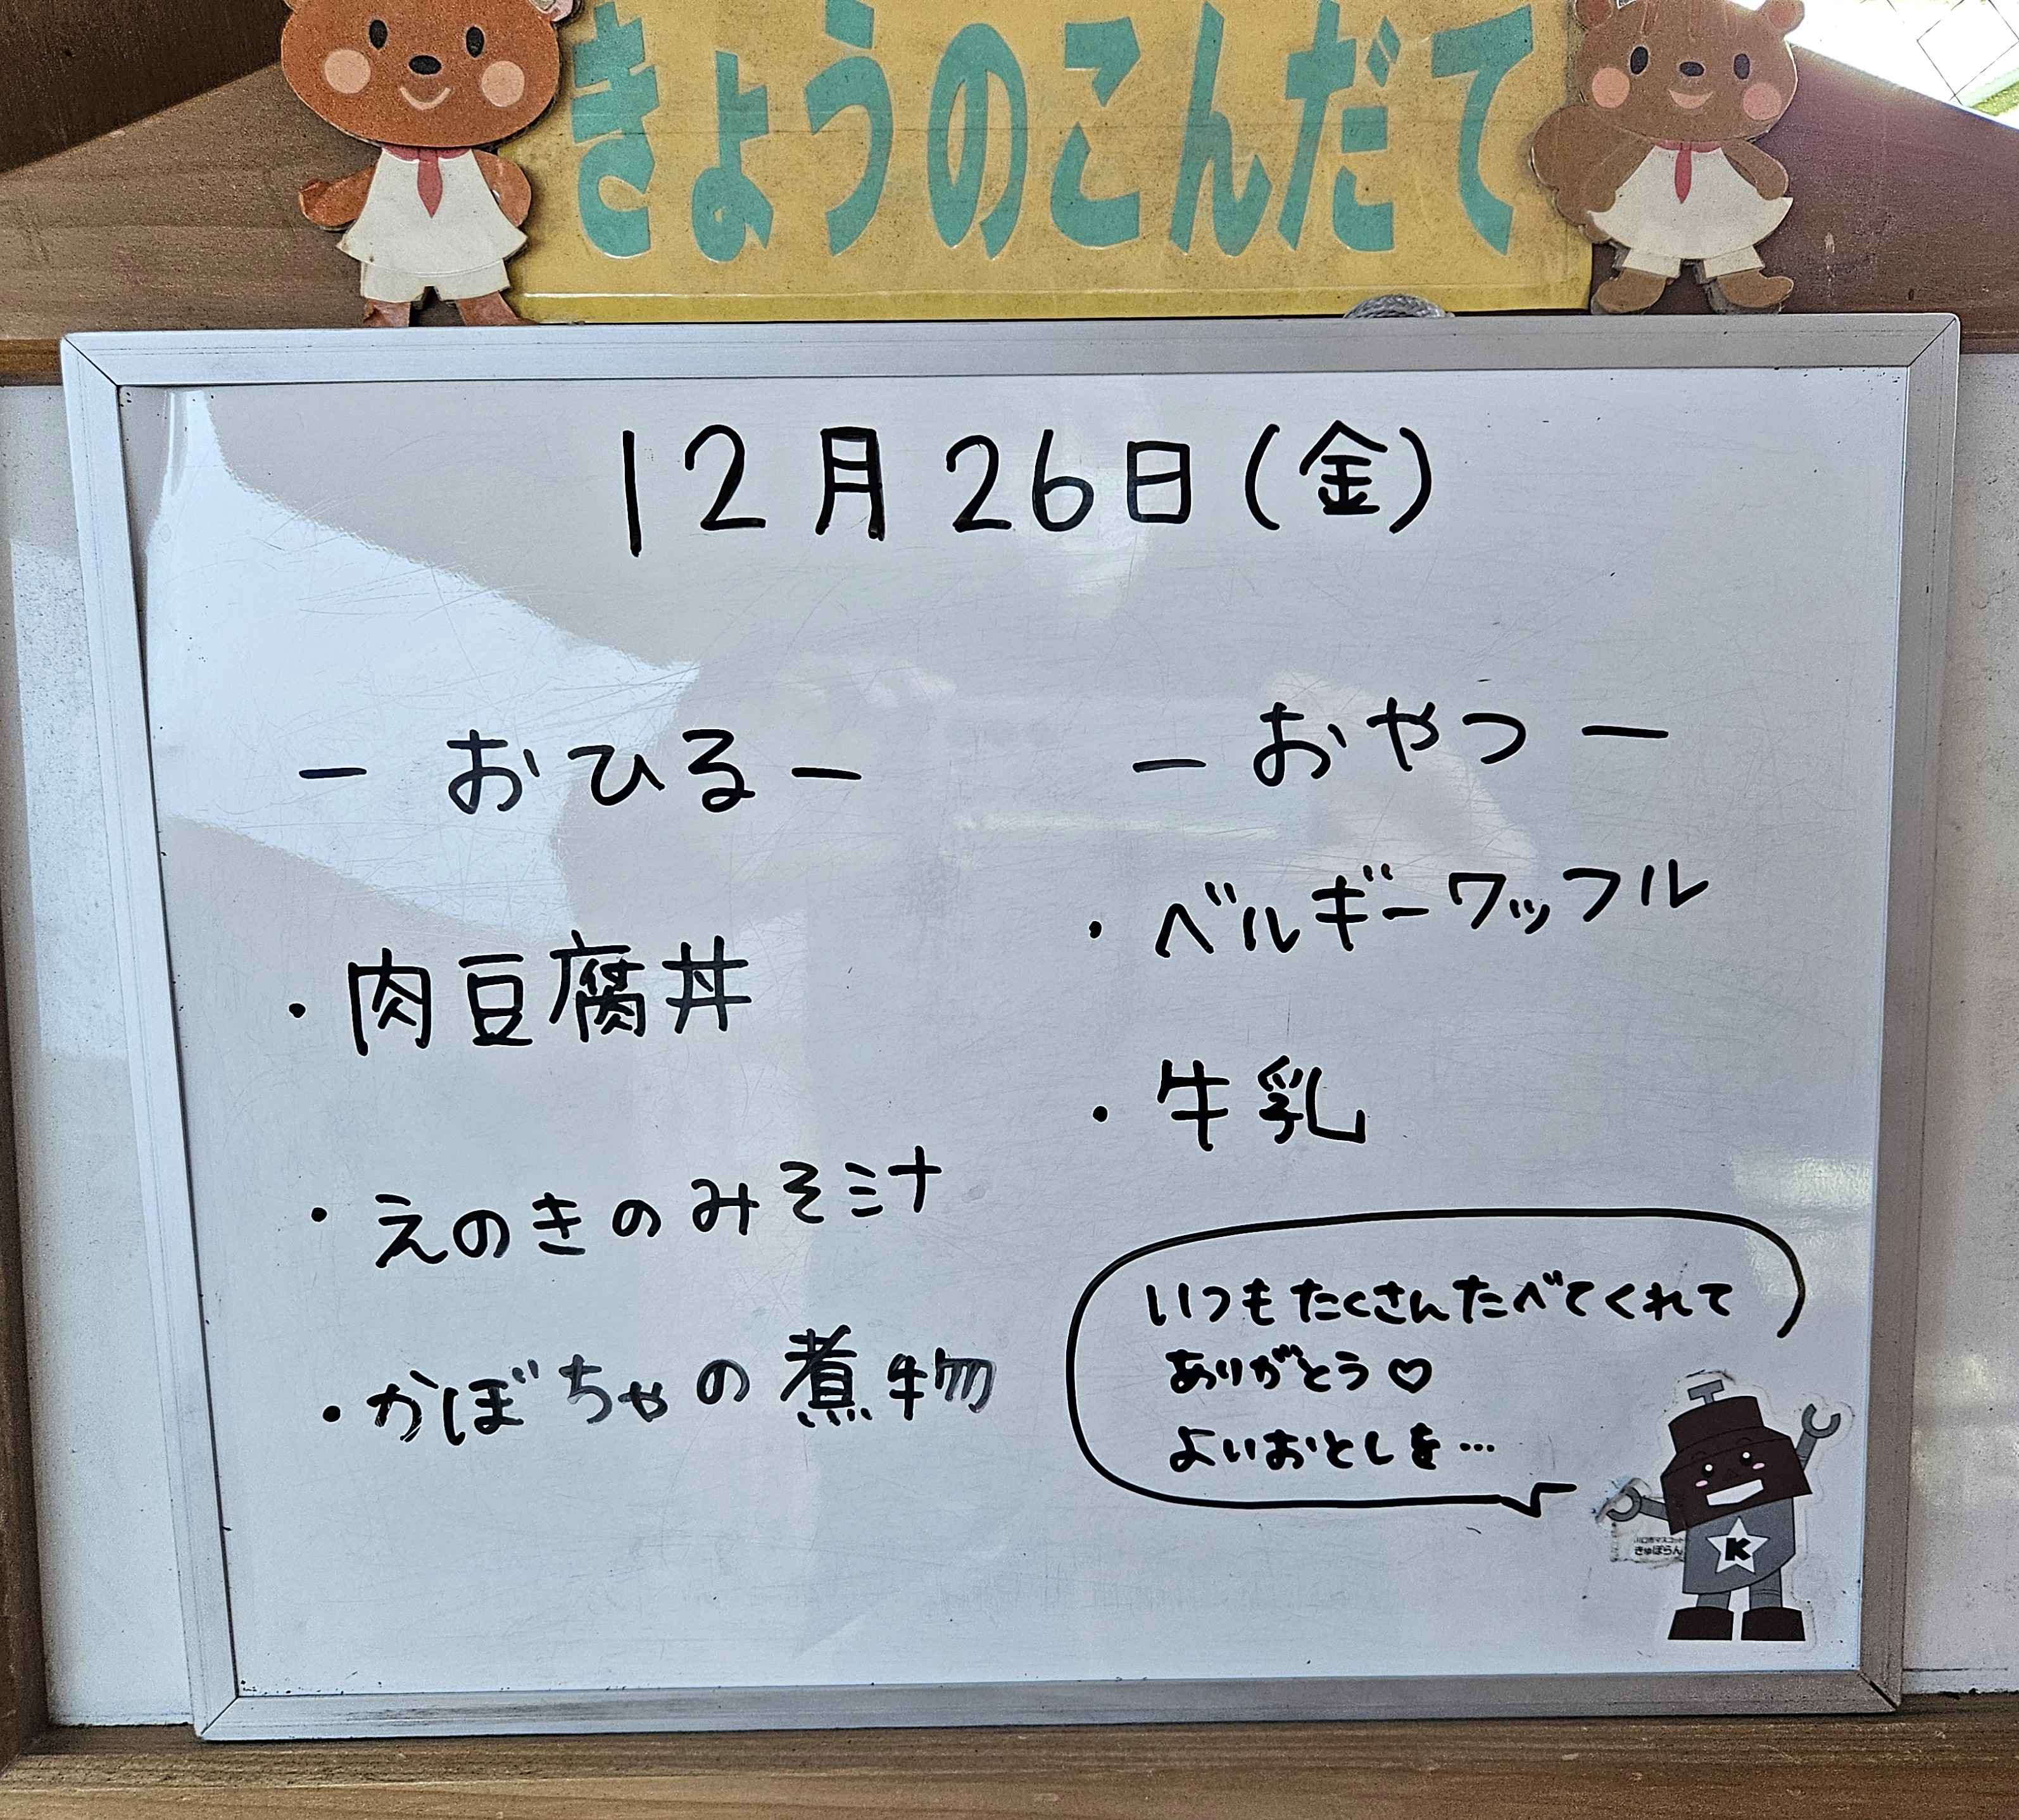 きょうのこんだて
12月26日(金)
ー おひる ー
・肉豆腐丼
・えのきのみそ汁
・かぼちゃの煮物
ー おやつ ー
・ベルギーワッフル
・牛乳
いつもたくさんたべてくれて
ありがとう♡
よいおとしを…
川口市マスコット
きゅぽらん
K